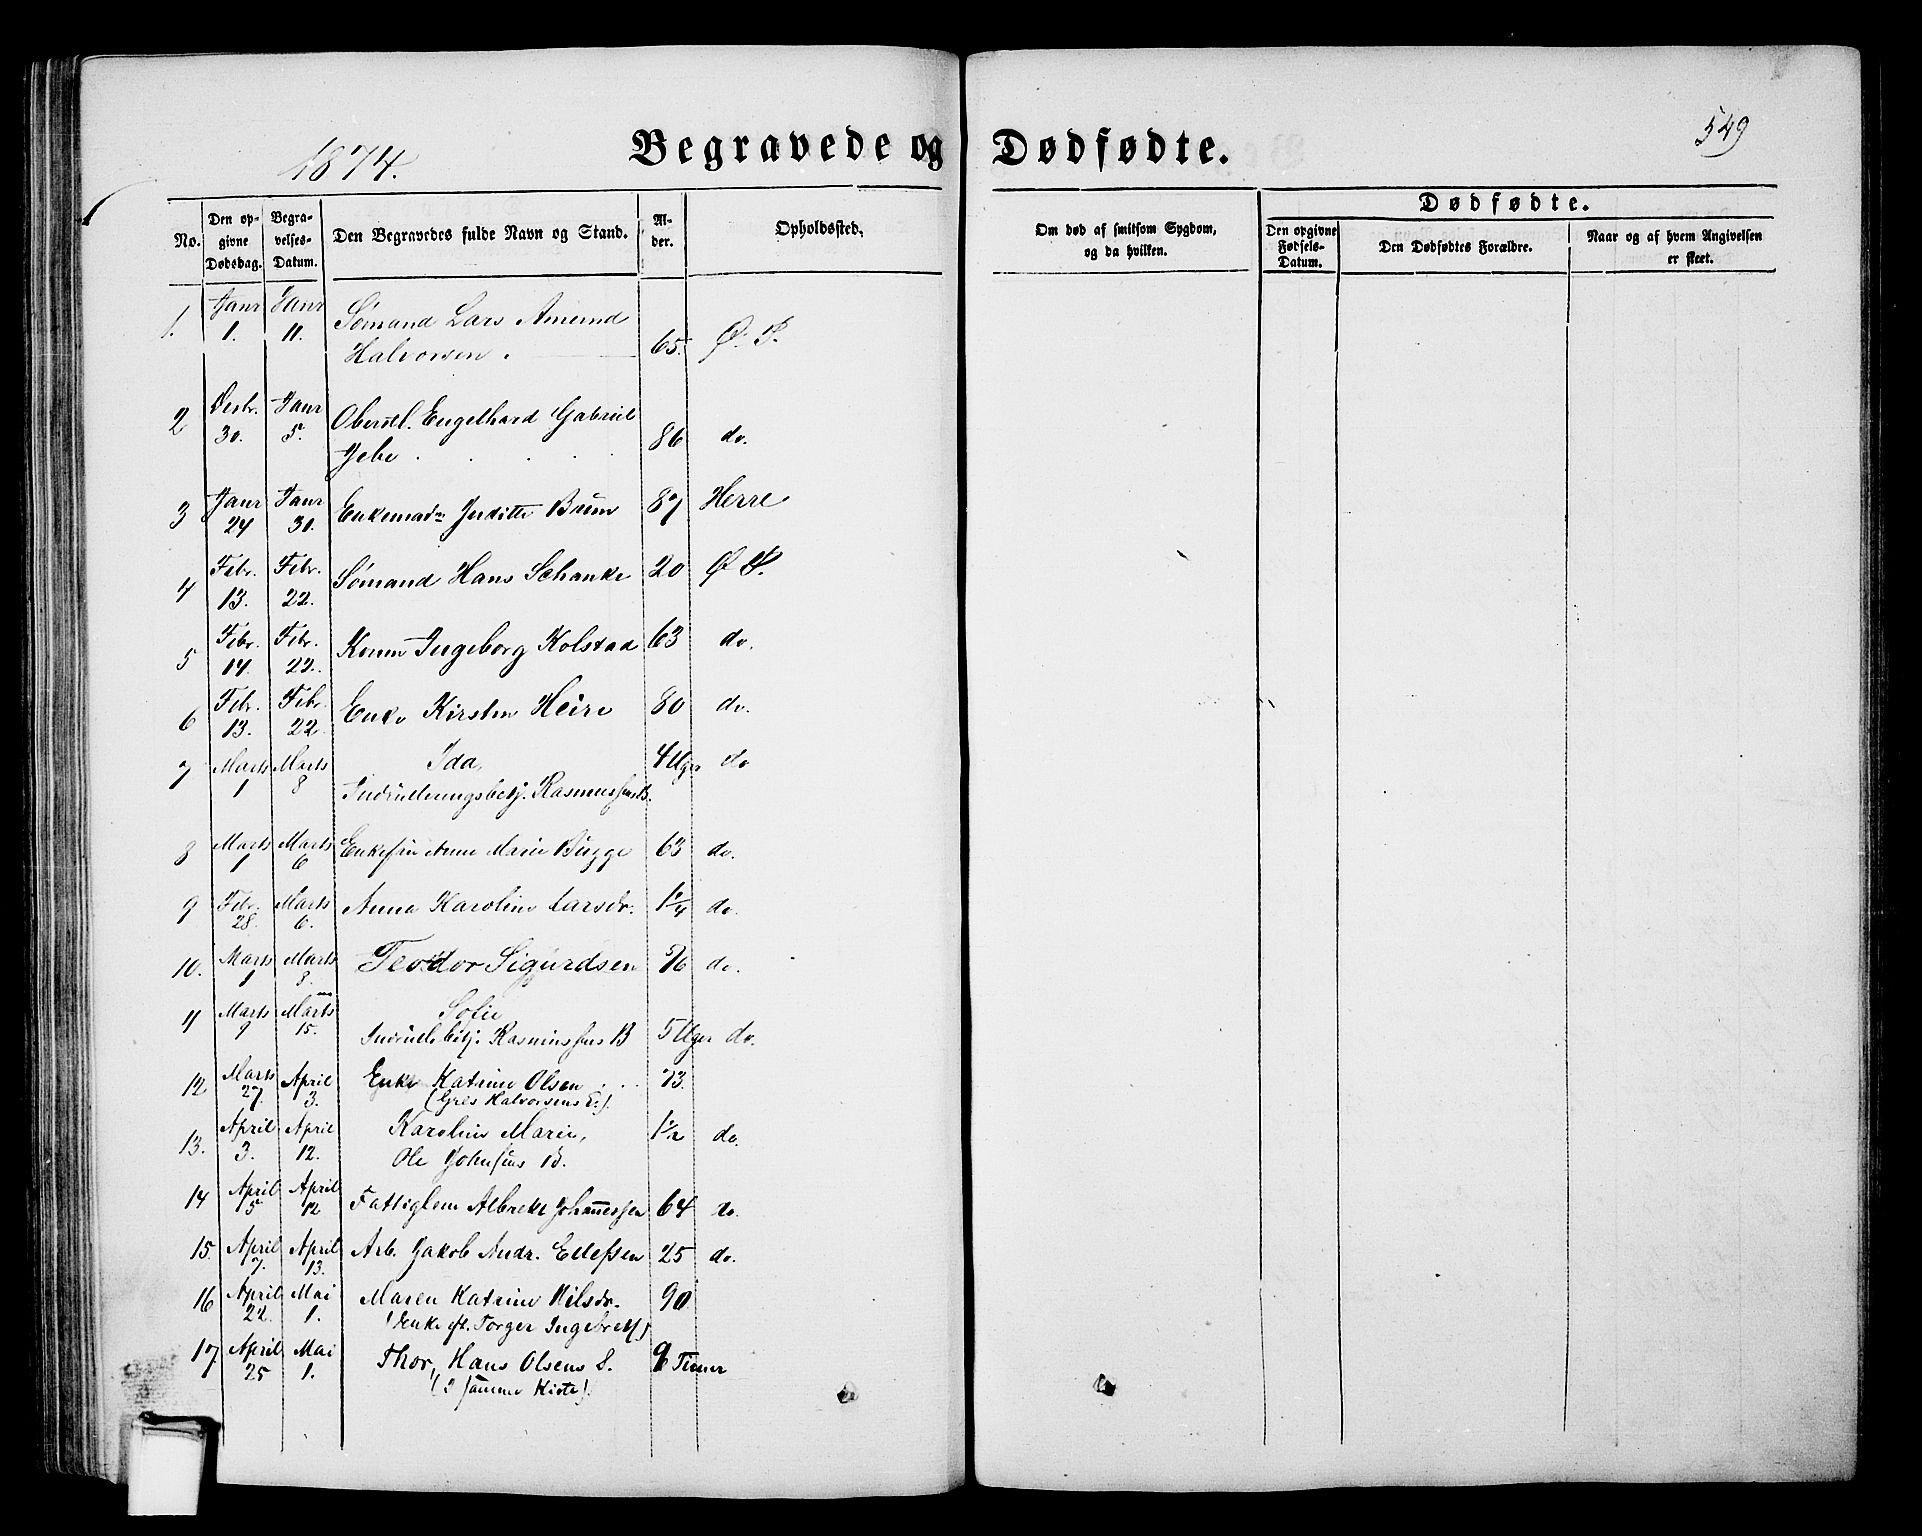 549
1874.
Begravede og Dødfødte.
No.
Den opgivne Dødsdag.
Begravelses-Datum.
Den Begravedes fulde Navn og Stand.
Alder.
Opholdssted.
Om død af smitsom Sygdom, og da hvilken.
Dødfødte.
Den opgivne Fødsels-Datum.
Den Dødfødtes Forældre.
Naar og af hvem Angivelsen er skeet.
1. Janr 1. Janr 11. Sømand Lars Amund
Halvorsen. 65. Ø. P.
2 Desbr. 30. Janr 5. Oberstl. Engelhard Gabriel
Jebe 86 do.
3 Janr 24 Janr 30. Enkemade Juditte Bruun 87 Herre
4 Febr. 13. Febr. 22. Sømand Hans Schanke 20 Ø P.
5 Febr. 14. Febr. 22. Konen Ingeborg Kolstad 63 do.
6 Febr. 13. Febr. 22. Enke Kirsten Heire 80 do.
7 Marts 1 Marts 8 Ida, 4 Uger do
Indrulleringsbetj. Rasmussens B.
8 Marts 1 Marts 6 Enkefru Anne Marie Bugge 63 do.
9 Febr. 28. Marts 6. Anna Karolin Larsdr. 1 1/4 do.
10. Marts 1 Marts 8. Teodor Sigurdsen 5/6 do.
11 Marts 9 Marts 15. Sofie
Indrulle betj. Rasmussens B 5 Uger do.
12 Marts 27 April 3. Enke Katrine Olsen 73.
(Gres Halvorsens E.).
13. April 3. April 12. Karoline Marie, 1 1/2 do.
Ole Johnsens B.
14 April 5 April 12 Fattiglem Albrekt Johannessen 64 do.
15. April 7. April 13. Arb. Jakob Andr. Ellefsen 25 do.
16 April 22. Mai 1. Maren Katrine Nilsdr. 90
(Enke eft. Torger Ingebretss)
17. April 25 Mai 1. Thor, Hans Olsens S. 9 Timer
(I samme Kiste).